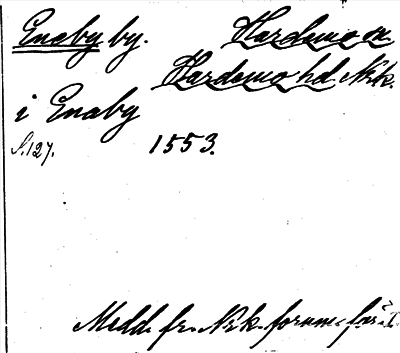 Enaby by. Hardemo sn
Hardemo hd. Nrk.
i Enaby
S.127. 1553.
Medd. fr. Nrk. fornm. för.